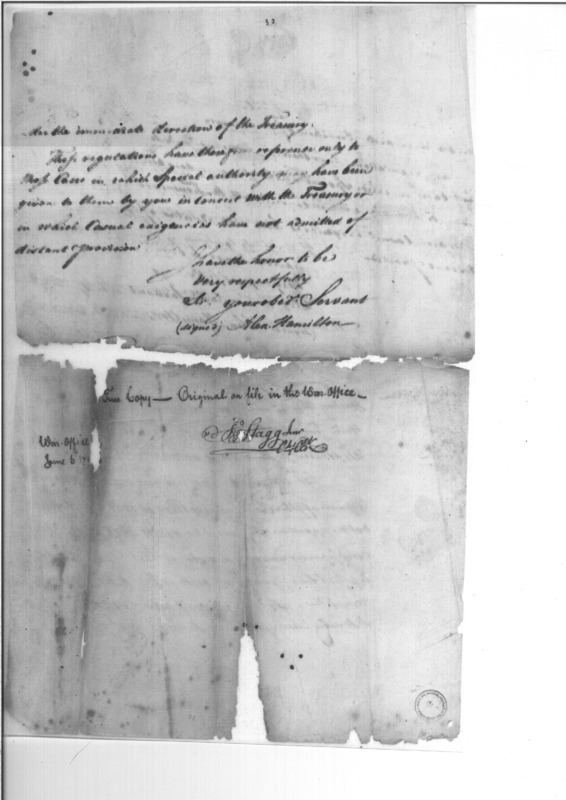 der the immediate direction of the Treasury.
These regulations have therefore reference only to
those Cases in which Special authority may have been
given to them by you in concert with the Treasury or
in which Casual exigencies have not admitted of
distant provision
I have the honor to be
Very respectfully
Sir your obedt. Servant
(signed) Alex. Hamilton
True Copy — Original on file in the War Office —
Jno Stagg Junr
War Office
June 6